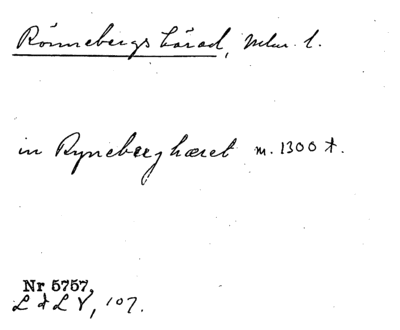 Rönnebergs härad, Mlm. l.
in Ryneberghæret m. 1300 t.
Nr 5757,
L d L V, 107.